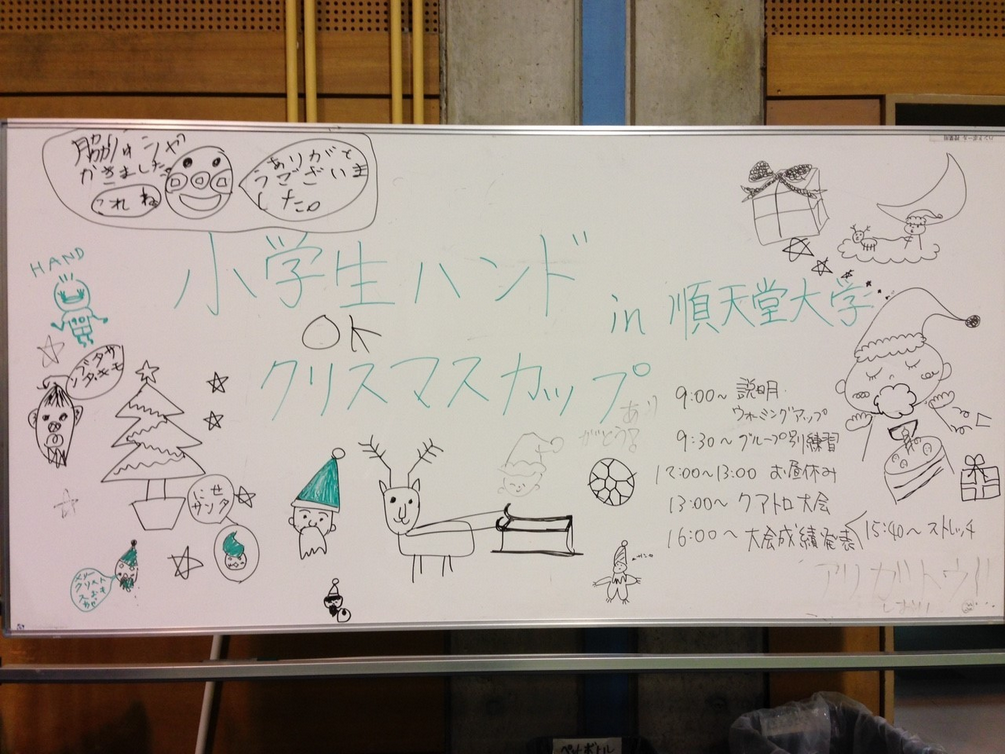 かきました。
これね
ありがと
うござい
ました。
HAND
小学生ハンド
OK
クリスマスカップ
in 順天堂大学
あり
がとう
9:00~ 説明
ウォーミングアップ
9:30~グループ別練習
12:00~13:00 お昼休み
13:00~ クアトロ大会
16:00~ 大会成績発表
15:40~ ストレッチ
にせ
サンタ
アリガトウ!!
ペットボトル